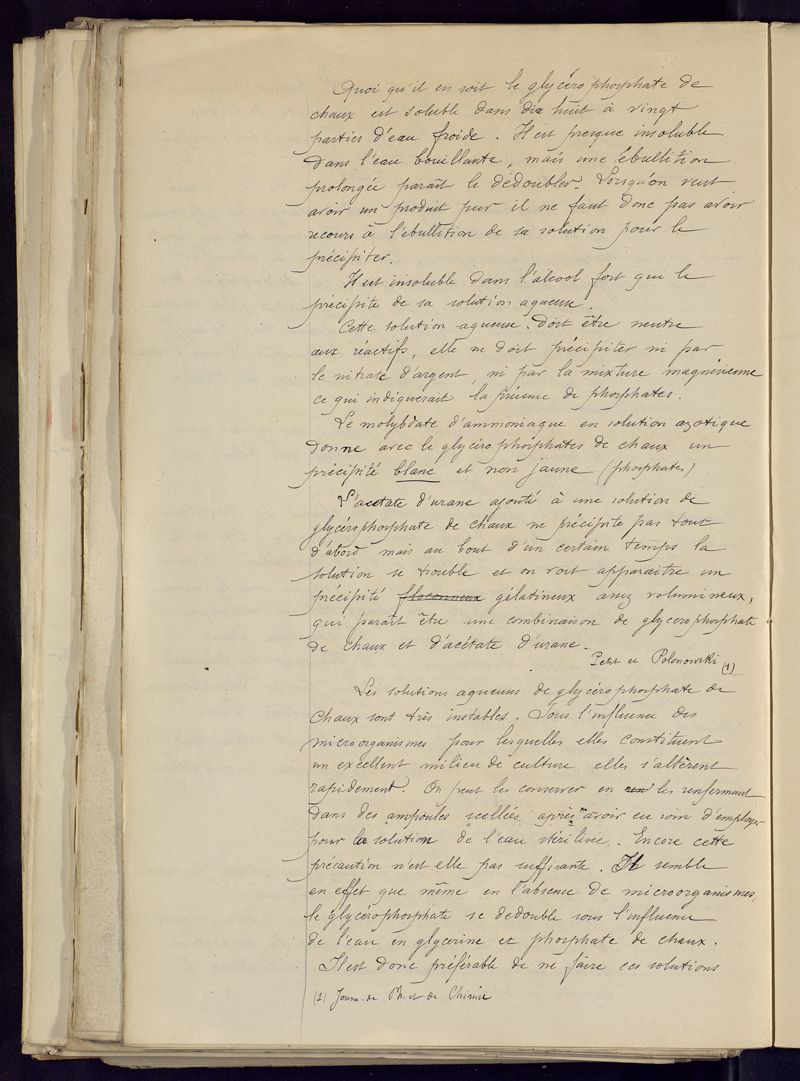 Quoi qu'il en soit le glycérophosphate de
chaux est soluble dans dix huit à vingt
parties d'eau froide. Il est presque insoluble
dans l'eau bouillante, mais une ébullition
prolongée paraît le dédoubler. Lorsqu'on veut
avoir un produit pur il ne faut donc pas avoir
recours à l'ébullition de sa solution pour le
précipiter.
Il est insoluble dans l'alcool fort qui le
précipite de sa solution aqueuse.
Cette solution aqueuse doit être neutre
aux réactifs, elle ne doit précipiter ni par
le nitrate d'argent, ni par la mixture magnésienne
ce qui indiquerait la présence de phosphates.
Le molybdate d'ammoniaque en solution azotique
donne avec le glycérophosphates de chaux un
précipité blanc et non jaune (phosphates)
L'acétate d'urane ajouté à une solution de
glycérophosphate de chaux ne précipite pas tout
d'abord mais au bout d'un certain temps la
solution se trouble et on voit apparaitre un
précipité floconneux gélatineux assez volumineux,
qui paraît être une combinaison de glycerophosphate
de chaux et d'acétate d'urane.
Petit et Polonowski (1)
Les solutions aqueuses de glycérophosphate de
chaux sont très instables. Sous l'influence des
microorganismes pour lesquelles elles constituent
un excellent milieu de culture elles s'altèrent
rapidement. On peut les conserver en les renfermant
dans des ampoules scellées après avoir eu soin d'employer
pour la solution de l'eau stérilisée. Encore cette
précaution n'est elle pas suffisante. Il semble
en effet que même en l'absence de microorganismes,
le glycérophosphate se dedouble sous l'influence
de l'eau en glycerine et phosphate de chaux.
Il est donc préférable de ne faire ces solutions
(1) Journ. de Ph. et de Chimie